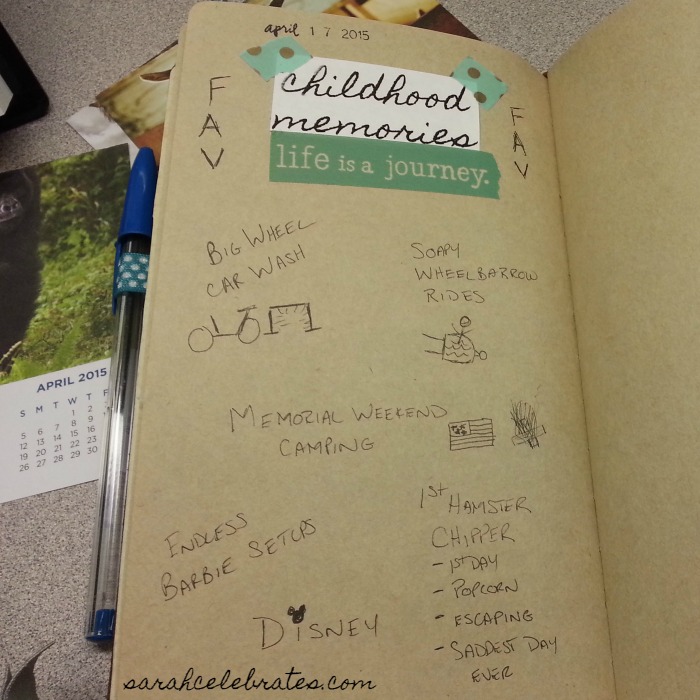 april 17 2015
FAV
childhood
memories
life is a journey.
FAV
BIG WHEEL
CAR WASH
SOAPY
WHEELBARROW
RIDES
MEMORIAL WEEKEND
CAMPING
ENDLESS
BARBIE SETUPS
1ST HAMSTER
CHIPPER
- 1ST DAY
- POPCORN
- ESCAPING
- SADDEST DAY
EVER
DISNEY
sarahcelebrates.com
APRIL 2015
S M T W T F
1 2
5 6 7 8 9
12 13 14 15 16
19 20 21 22 23
26 27 28 29 30